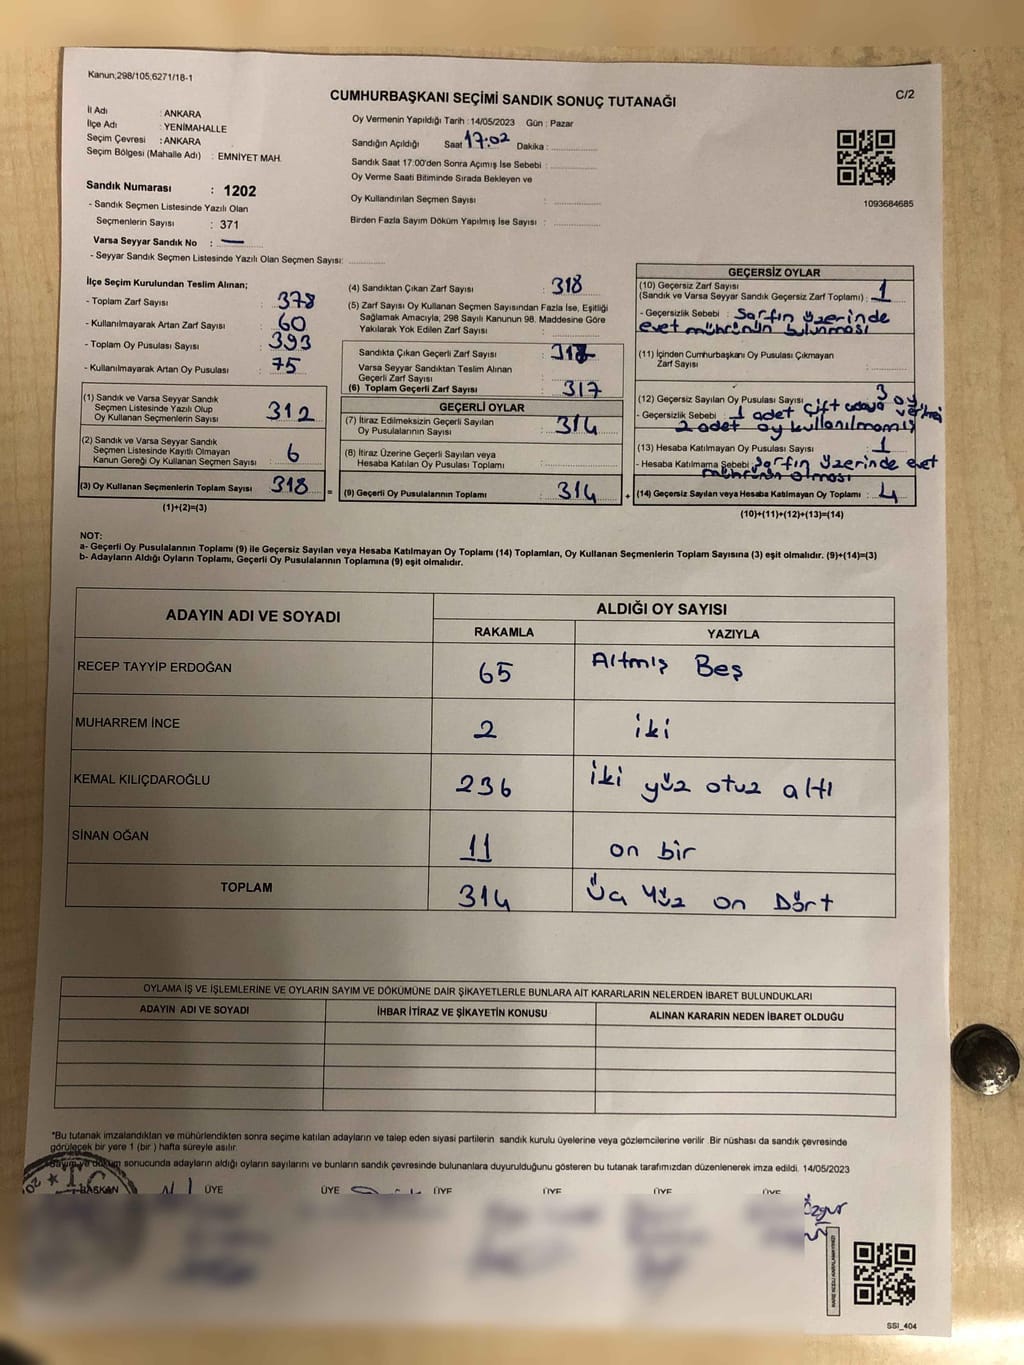 Kanun,298/105,6271/18-1
C/2
CUMHURBAŞKANI SEÇİMİ SANDIK SONUÇ TUTANAĞI
İl Adı : ANKARA
İlçe Adı : YENİMAHALLE
Seçim Çevresi : ANKARA
Seçim Bölgesi (Mahalle Adı) : EMNİYET MAH.
Sandık Numarası : 1202
- Sandık Seçmen Listesinde Yazılı Olan
Seçmenlerin Sayısı : 371
Varsa Seyyar Sandık No : —
- Seyyar Sandık Seçmen Listesinde Yazılı Olan Seçmen Sayısı:
Oy Vermenin Yapıldığı Tarih : 14/05/2023 Gün : Pazar
Sandığın Açıldığı Saat 17:02 Dakika :
Sandık Saat 17:00'den Sonra Açımış İse Sebebi :
Oy Verme Saati Bitiminde Sırada Bekleyen ve
Oy Kullandırılan Seçmen Sayısı :
Birden Fazla Sayım Döküm Yapılmış İse Sayısı :
1093684685
İlçe Seçim Kurulundan Teslim Alınan;
- Toplam Zarf Sayısı : 378
- Kullanılmayarak Artan Zarf Sayısı : 60
- Toplam Oy Pusulası Sayısı : 393
- Kullanılmayarak Artan Oy Pusulası : 75
(1) Sandık ve Varsa Seyyar Sandık
Seçmen Listesinde Yazılı Olup
Oy Kullanan Seçmenlerin Sayısı : 312
(2) Sandık ve Varsa Seyyar Sandık
Seçmen Listesinde Kayıtlı Olmayan
Kanun Gereği Oy Kullanan Seçmen Sayısı : 6
(3) Oy Kullanan Seçmenlerin Toplam Sayısı : 318 =
(1)+(2)=(3)
(4) Sandıktan Çıkan Zarf Sayısı : 318
(5) Zarf Sayısı Oy Kullanan Seçmen Sayısından Fazla İse, Eşitliği
Sağlamak Amacıyla, 298 Sayılı Kanunun 98. Maddesine Göre
Yakılarak Yok Edilen Zarf Sayısı :
Sandıkta Çıkan Geçerli Zarf Sayısı : 317
Varsa Seyyar Sandıktan Teslim Alınan
Geçerli Zarf Sayısı :
(6) Toplam Geçerli Zarf Sayısı : 317
GEÇERLİ OYLAR
(7) İtiraz Edilmeksizin Geçerli Sayılan
Oy Pusulalarının Sayısı : 314
(8) İtiraz Üzerine Geçerli Sayılan veya
Hesaba Katılan Oy Pusulası Toplamı :
(9) Geçerli Oy Pusulalarının Toplamı : 314 +
GEÇERSİZ OYLAR
(10) Geçersiz Zarf Sayısı
(Sandık ve Varsa Seyyar Sandık Geçersiz Zarf Toplamı) : 1
- Geçersizlik Sebebi : Sarfın üzerinde
evet mührünün bulunması
(11) İçinden Cumhurbaşkanı Oy Pusulası Çıkmayan
Zarf Sayısı :
(12) Geçersiz Sayılan Oy Pusulası Sayısı : 3 oy
- Geçersizlik Sebebi : 1 adet çift adaya
2 adet oy kullanılmamış
(13) Hesaba Katılmayan Oy Pusulası Sayısı : 1
- Hesaba Katılmama Sebebi : Sarfın üzerinde evet
mührünün olması
(14) Geçersiz Sayılan veya Hesaba Katılmayan Oy Toplamı : 4
(10)+(11)+(12)+(13)=(14)
NOT:
a- Geçerli Oy Pusulalarının Toplamı (9) ile Geçersiz Sayılan veya Hesaba Katılmayan Oy Toplamı (14) Toplamları, Oy Kullanan Seçmenlerin Toplam Sayısına (3) eşit olmalıdır. (9)+(14)=(3)
b- Adayların Aldığı Oyların Toplamı, Geçerli Oy Pusulalarının Toplamına (9) eşit olmalıdır.
ADAYIN ADI VE SOYADI ALDIĞI OY SAYISI
RAKAMLA YAZIYLA
RECEP TAYYİP ERDOĞAN 65 Altmış Beş
MUHARREM İNCE 2 iki
KEMAL KILIÇDAROĞLU 236 iki yüz otuz altı
SİNAN OĞAN 11 on bir
TOPLAM 314 Üç Yüz on Dört
OYLAMA İŞ VE İŞLEMLERİNE VE OYLARIN SAYIM VE DÖKÜMÜNE DAİR ŞİKAYETLERLE BUNLARA AİT KARARLARIN NELERDEN İBARET BULUNDUKLARI
ADAYIN ADI VE SOYADI İHBAR İTİRAZ VE ŞİKAYETİN KONUSU ALINAN KARARIN NEDEN İBARET OLDUĞU
*Bu tutanak imzalandıktan ve mühürlendikten sonra seçime katılan adayların ve talep eden siyasi partilerin sandık kurulu üyelerine veya gözlemcilerine verilir .Bir nüshası da sandık çevresinde
görülecek bir yere 1 (bir ) hafta süreyle asılır.
Sayım ve döküm sonucunda adayların aldığı oyların sayılarını ve bunların sandık çevresinde bulunanlara duyurulduğunu gösteren bu tutanak tarafımızdan düzenlenerek imza edildi. 14/05/2023
BAŞKAN ÜYE ÜYE ÜYE ÜYE ÜYE ÜYE
T.C.
Özgür
SSI_404